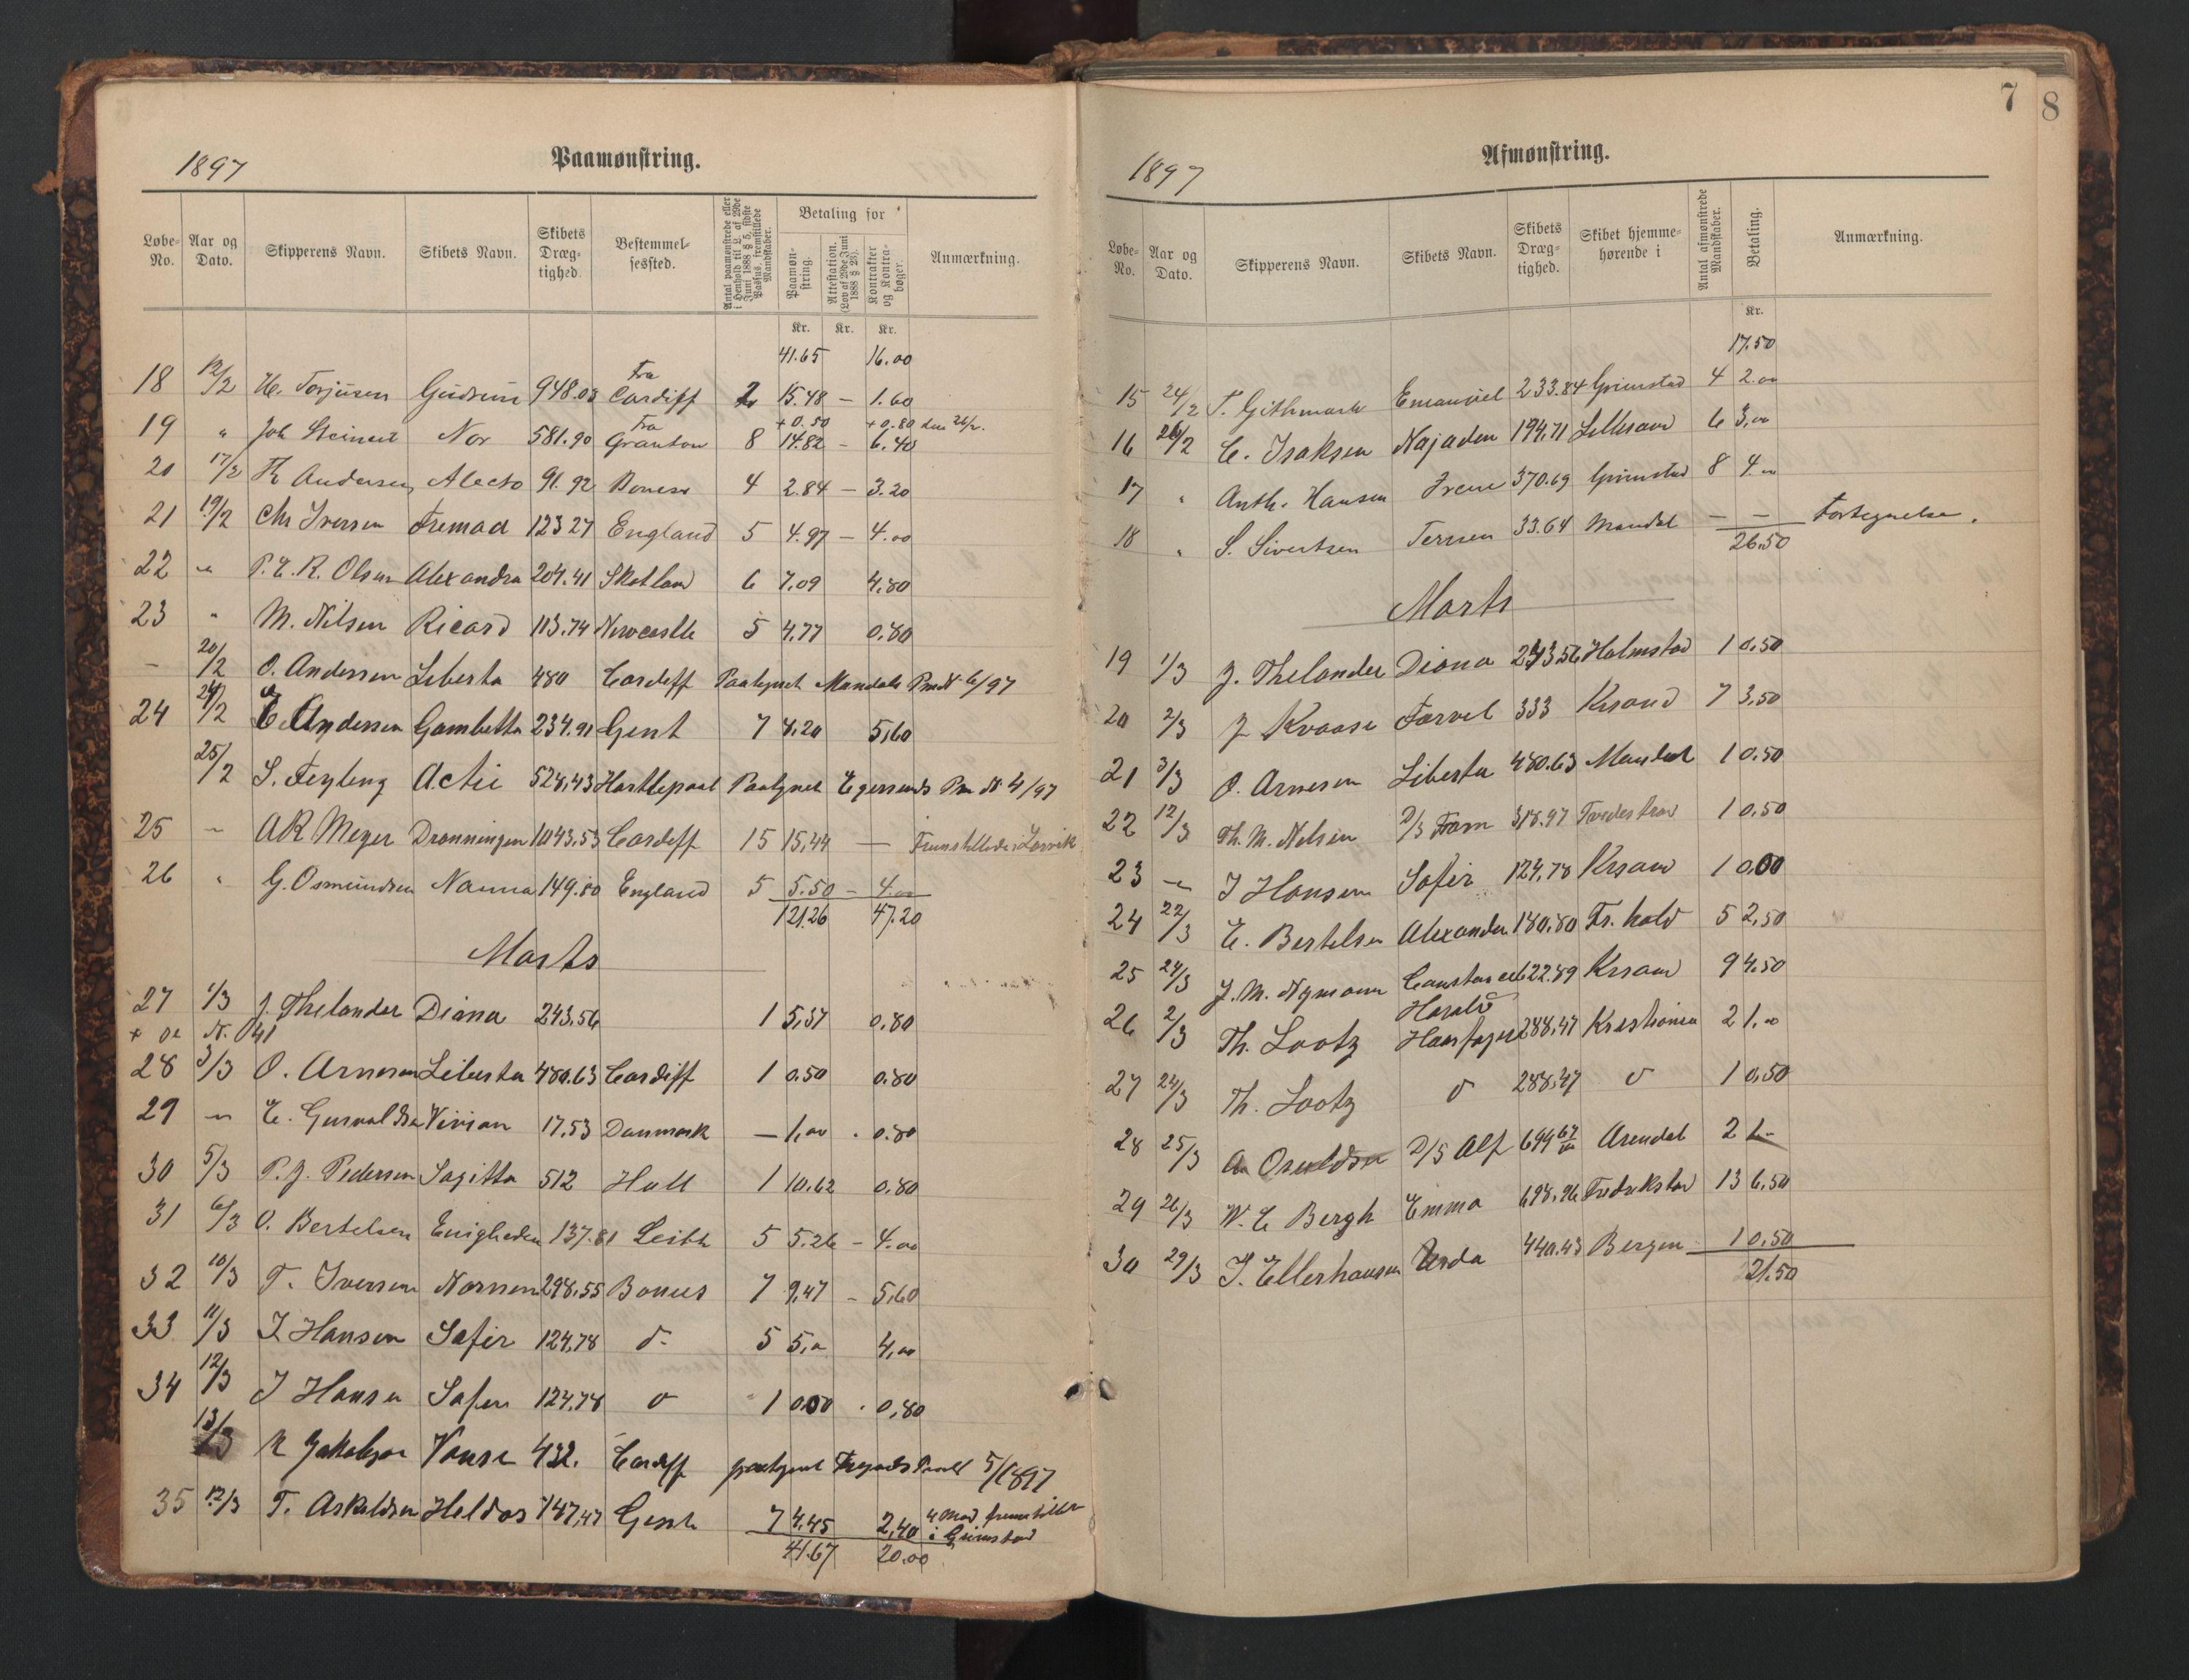 1897
Paamønstring.
Løbe-No.
Aar og Dato.
Skipperens Navn.
Skibets Navn.
Skibets Dræg-tighed.
Bestemmel-sessted.
Antal paamønstrede eller i Henhold til L. af 29de Juni 1888 § 5, sidste Passus, fremstillede Mandskaber.
Betaling for
Paamøn-string.
Attestation. (Lov af 29de Juni 1888 § 28).
Kontrakter og Kontra-bøger.
Anmærkning.
Kr. Kr. Kr.
41.65 16.00
18 12/2 H. Torjusen Gudrun 948.03 Fra Cardiff 2 15.48 — 1.60
+0.50 +0.80 den 26/2.
19 " Joh Steinert Nor 581.90 Fra Granton 8 14.82 - 6.40
20 17/2 Th Andersen Alecto 91.92 Boness 4 2.84 — 3.20
21 19/2 Chr Iversen Fremad 123 27 England 5 4.97 — 4.00
22 " P.E.R. Olsen Alexandra 204.41 Skotland 6 7.09 4.80
23 " M. Nilsen Ricard 113.74 Newcastle 5 4.77 0.80
— 20/2 O. Andersen Liberta 480 Cardiff Paategnet Mandals Pm № 6/97
24 24/2 C. Andersen Gambetta 234.91 Gent 7 7.20 5,60
25/2 S. Feyling Activ 528,43 Hartlepool Paategnet Egersunds Pm № 4/97
25 — AR Meyer Dronningen 1043.53 Cardiff 15 15,44 — Fremstillede i Larvik
26 " G. Osmundsen Nanna 149.80 England 5 5.50 - 4.00
121.26 47.20
Marts
27 1/3 J. Thelander Diana 243.56 1 5,37 0.80
28 3/3 O. Arnesen Liberta 480.63 Cardiff 1 0.50 0.80
29 — E. Gunvaldsen Vivian 17.53 Danmark — 1,00 . 0.80
30 5/3 P.J. Pedersen Sagitta 512 Hull 1 10.62 0.80
31 6/3 O. Bertelsen Enigheden 137.81 Leith 5 5.26 - 4.00
32 10/3 T. Iversen Nornen 298.55 Boness 7 9,47 - 5,60
33 11/3 I Hansen Safir 124,78 do 5 5,00 4,00
34 12/3 I Hansen Safir 124.78 do 1 0.00 . 0,80
13/3 Jakobsen Vanse 432. Cardiff paategnet 5/1897
35 12/3 T. Askildsen Heldos 147,47 Gent 7 4,45 2,40 4 Mand fremstillet i Grimstad
41.67 20.00
7 8
1897
Afmønstring.
Løbe-No.
Aar og Dato.
Skipperens Navn.
Skibets Navn.
Skibets Dræg-tighed.
Skibet hjemme-hørende i
Antal afmønstrede Mandskaber.
Betaling.
Anmærkning.
Kr.
17.50
15 24/2 T. Githmark Emanuel 233.84 Grimstad 4 2.00
16 26/2 C. Isaksen Najaden 194.71 Lillesand 6 3,00
17 " Anth. Hansen Irene 370.69 Grimstad 8 4.00
18 " S. Sivertsen Ternen 33.64 Mandal — — Fortegnelse.
26.50
Marts
19 1/3 J. Thelander Diana 243.56 Halmstad 1 0.50
20 2/3 J Kvaase Farvel 333 Krsand 7 3,50
21 3/3 O. Arnesen Liberta 480.63 Mandal 1 0.50
22 12/3 Th. M. Nilsen D/S Fram 318.97 Tvedestrand 1 0.50
23 — I Hansen Safir 124,78 Krsand 1 0.00
24 22/3 E. Bertelsen Alexander 180,80 Fr.hald 5 2,50
25 24/3 J. M. Nymann Constance 622.89 Krsand 9 4.50
26 2/3 Th. Lootz Harald Haarfager 288,47 Kristiania 2 1.00
27 24/3 Th. Lootz do 288,47 do 1 0,50
28 25/3 A Osuldsen D/S Alf 699 67/100 Arendal 2 1.—
29 26/3 W. C Bergh Emma 698,96 Fredrikstad 13 6,50
30 29/3 J. Ellerhausen Urda 440.43 Bergen 1 0.50
21.50